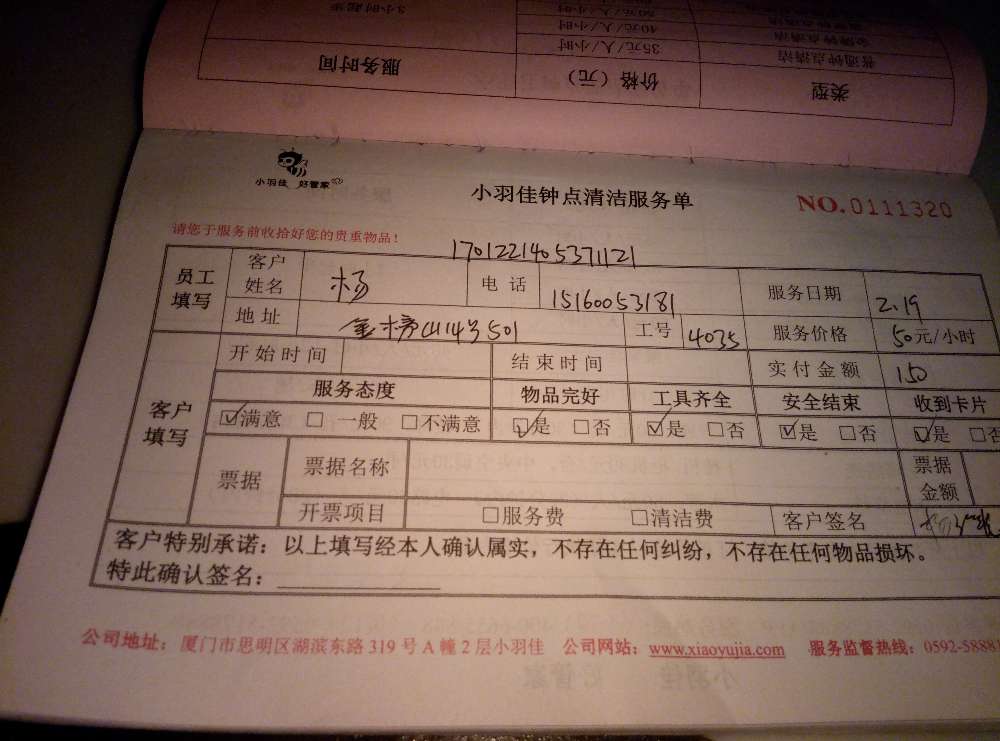 类型 价格（元） 服务时间
普通钟点清洁 35元/人/小时
金牌钟点清洁 40元/人/小时
3小时起步
小羽佳 好管家
小羽佳钟点清洁服务单
NO.0111320
请您于服务前收拾好您的贵重物品！
1701221405371121
员工填写 客户姓名 杨 电话 15160053181 服务日期 2.19
地址 金榜山14号501 工号 4035 服务价格 50元/小时
客户填写 开始时间 结束时间 实付金额 150
服务态度 物品完好 工具齐全 安全结束 收到卡片
☑满意 □一般 □不满意 ☑是 □否 ☑是 □否 ☑是 □否 ☑是 □否
票据 票据名称 票据金额
开票项目 □服务费 □清洁费 客户签名
客户特别承诺：以上填写经本人确认属实，不存在任何纠纷，不存在任何物品损坏。
特此确认签名：
公司地址：厦门市思明区湖滨东路319号A幢2层小羽佳 公司网站：www.xiaoyujia.com 服务监督热线：0592-5888